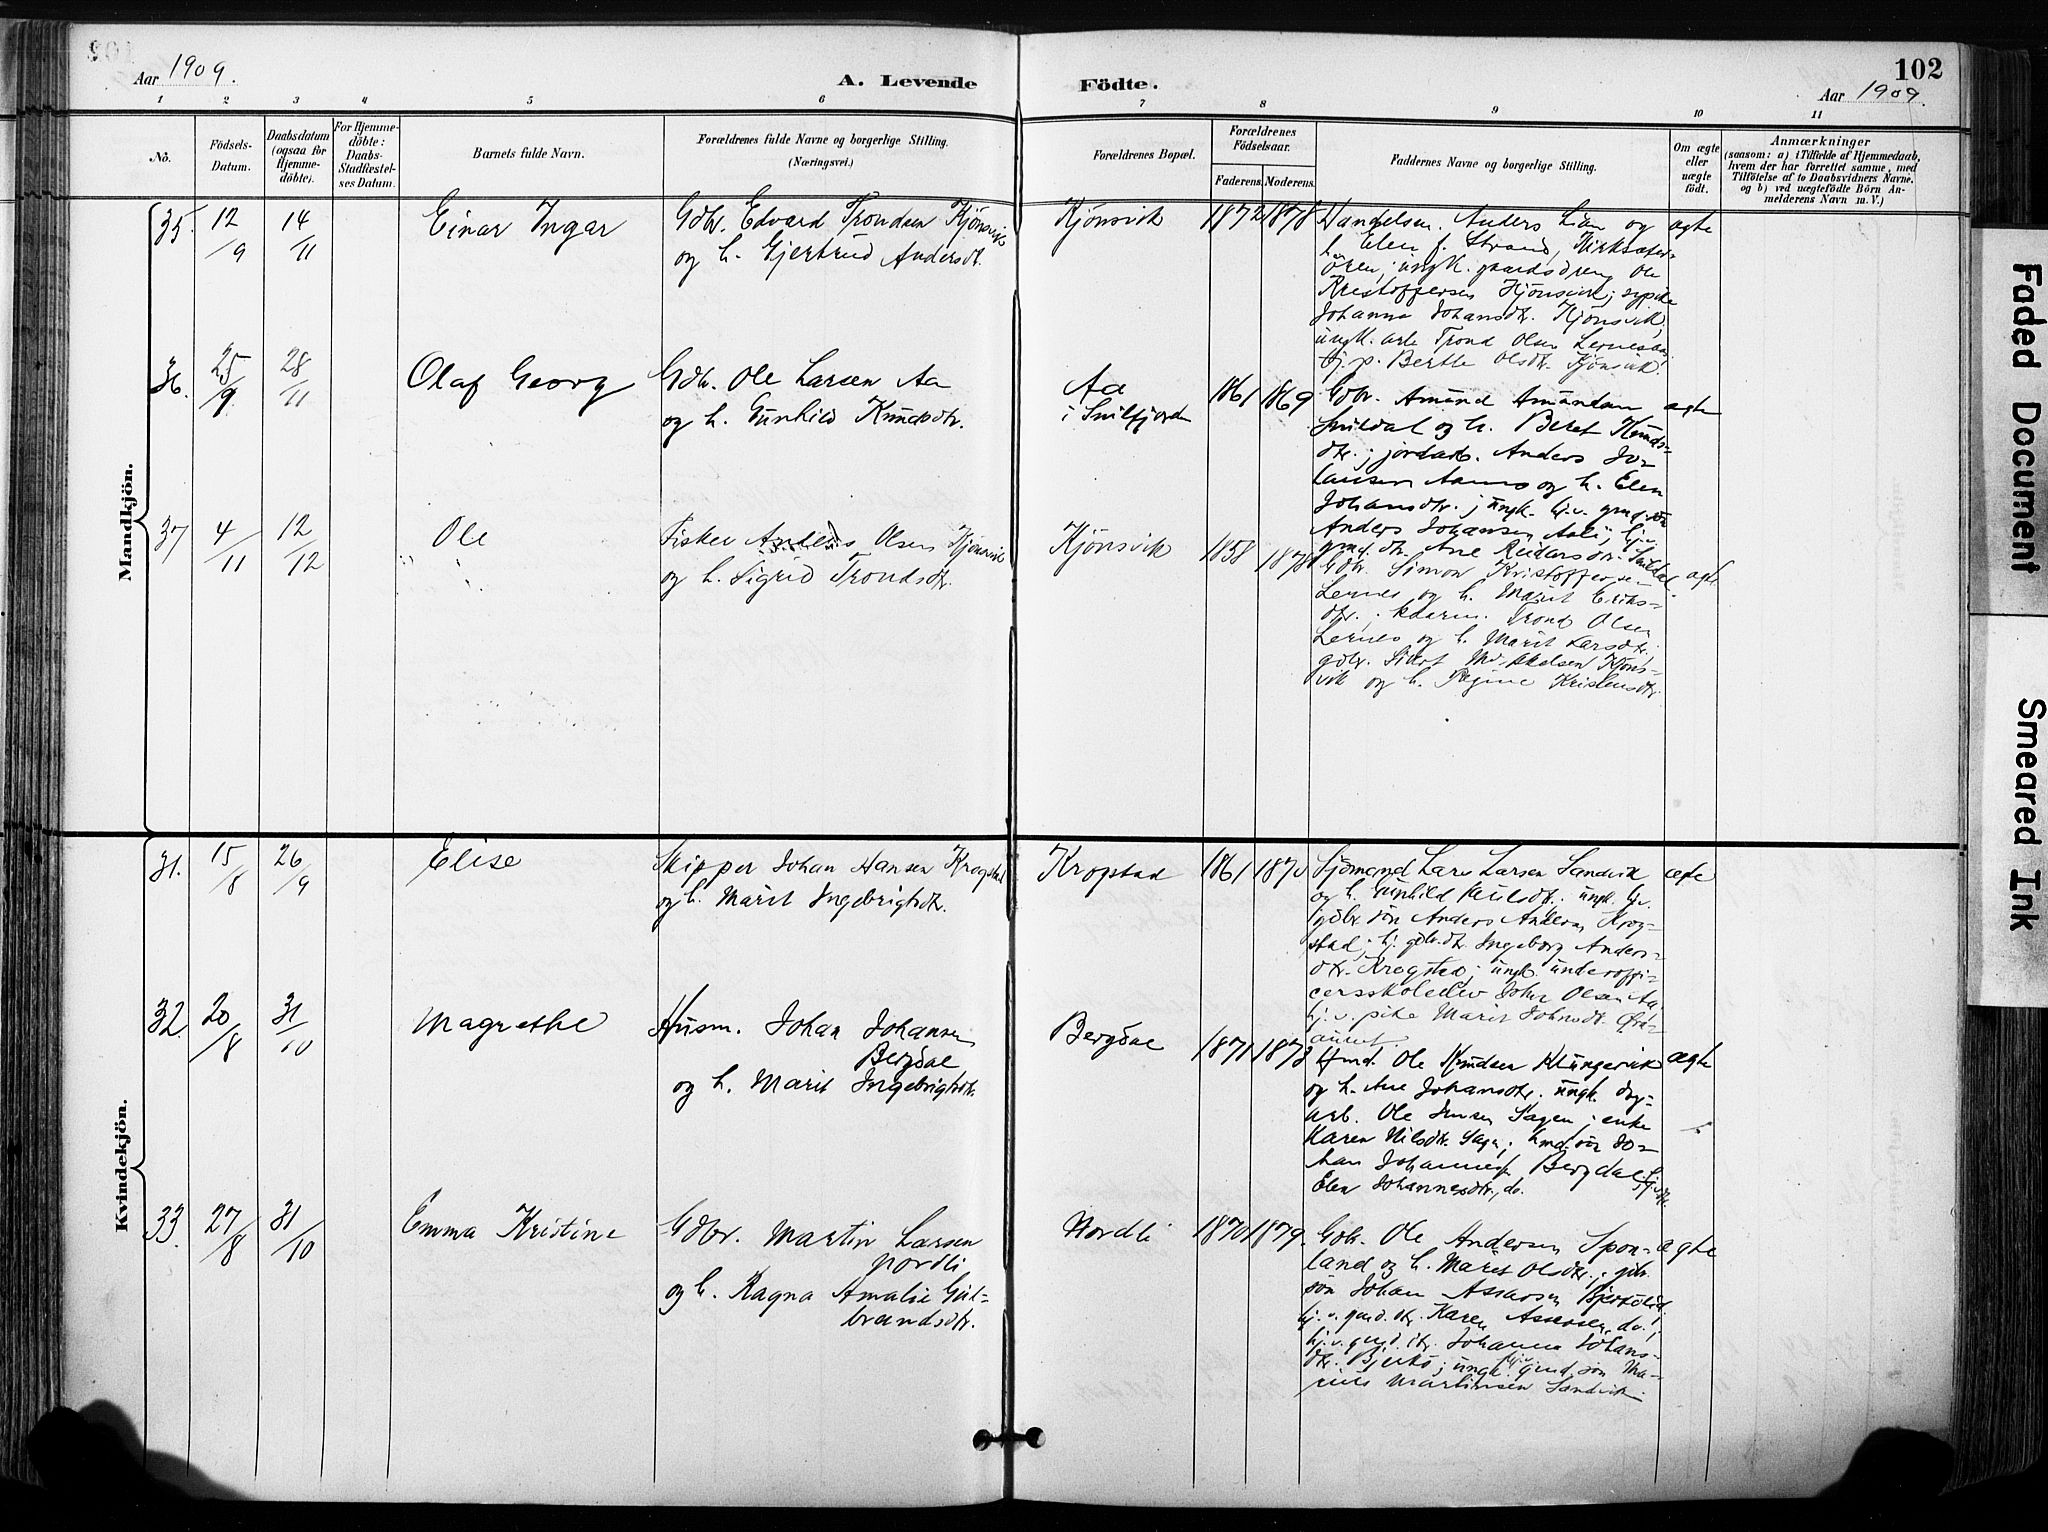 Aar 1909.
A. Levende Födte.
102
Aar 1909.
1 2 3 4 5 6 7 8 9 10 11
No.
Födsels-Datum.
Daabsdatum (ogsaa for Hjemme-döbte).
For Hjemme-döbte: Daabs-Stadfæstel-ses Datum.
Barnets fulde Navn.
Forældrenes fulde Navne og borgerlige Stilling. (Næringsvei.)
Forældrenes Bopæl.
Forældrenes Födselsaar.
Faderens. Moderens.
Faddernes Navne og borgerlige Stilling.
Om ægte eller uægte födt.
Anmærkninger
(saasom: a) i Tilfælde af Hjemmedaab, hvem der har forrettet samme, med Tilföielse af to Daabsvidners Navne, og b) ved uægtefödte Börn An-melderens Navn m. V.)
Mandkjön.
35. 12/9 14/11 Einar Ingar
Gdbr. Edvard Trondsen Kjønsvik
og h. Gjertrud Andersdt.
Kjønsvik 1872 1878
Handelsm. Anders Lian og
h. Elen f. Strand, Kirksæter-
ören; ungk. gaardsdreng Ole
Kristoffersen Kjönsvik; sypike
Johanna Johansdtr. Kjönsvik,
ungk. arb. Trond Olsen
p. Berthe Olsdtr. Kjönsvik.
ægte
36. 25/9 28/11 Olaf Georg
Gdbr. Ole Larsen Aa
og h. Gunhild Knudsdtr.
Aa
i Snilfjorden
1861 1869
Gdbr. Amund Amundsen
Snildal og h. Beret Knuds-
dtr.; Anders Jo-
hansen og h. Elen
Johansdtr.; ungk. hj.v. gmd.søn
Anders Johansen Aali; hj.v.
gmd.dtr. Ane Reidarsdtr. Snildal.
ægte
37 4/11 12/12 Ole
Fisker Anders Olsen Kjönsvik
og h. Sigrid Trondsdtr.
Kjönsvik 1858 1878
Gdbr. Simon Kristoffersen
Lernes og h. Marit Eriks-
dtr.; kaarm. Trond Olsen
Lernes og h. Marit Larsdtr.;
gdbr. Sivert Mikkelsen Kjöns-
vik og h. Kristensdtr.
ægte
Kvindekjön.
31. 15/8 26/9 Elise
Skipper Johan Hansen Krogstad
og h. Marit Ingebrigtsdtr.
Krogstad 1861 1870
Sjömand Lars Larsen Sandvik
og h. Gunhild ungk. hj.v.
gdbr.søn Anders Andersen Krog-
stad; hj. gdbr.dtr. Ingeborg Anders-
dtr. Krogstad; ungk. underoffi-
cersskoleelev John Olsen Aa
hj.v. pike Marit Johnsdtr.
ægte
32. 20/8 31/10 Magrethe
Husm. Johan Johansen
Bergdal
og h. Marit Ingebrigtsdtr.
Bergdal 1871 1873
Hmd. Ole Knudsen Klungervik
og h. Ane Johansdtr. ungk. dag-
arb. Ole Jensen Sagen; enke
Karen Nilsdtr. Sagen; hmd.søn Jo-
han Johannes. Bergdal; hj.v.
Elen Johannesdtr., do.
ægte
33. 27/8 31/10 Emma Kristine
Gdbr. Martin Larsen
Nordli
og h. Ragna Amalie Gul-
brandsdtr.
Nordli 1870 1879.
Gdbr. Ole Andersen Spon-
land og h. Marit Olsdtr.; gdbr.
søn Johan Assersen
hj.v. gmd.dtr. Karen Assersen, do.;
hj.v. gmd.dtr. Johanna Johans-
dtr. Bjerkö; ungk. hj.v. gmd.søn Ma-
rius Martinsen Sandvik.
ægte
Faded Document
Smeared Ink